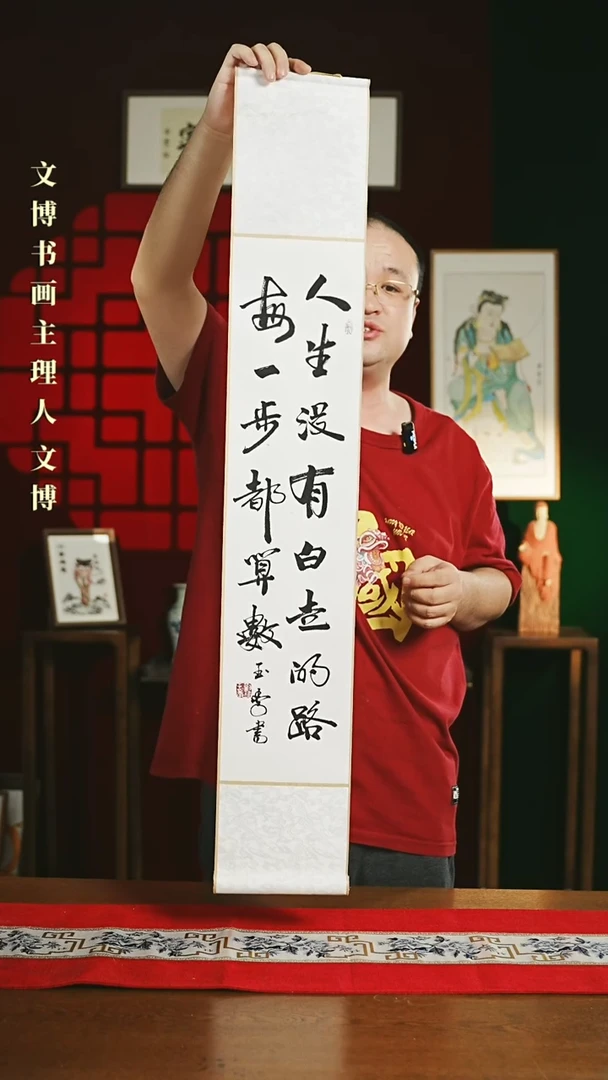 文博书画主理人文博
人生没有白走的路
每一步都算數
玉秀書
國